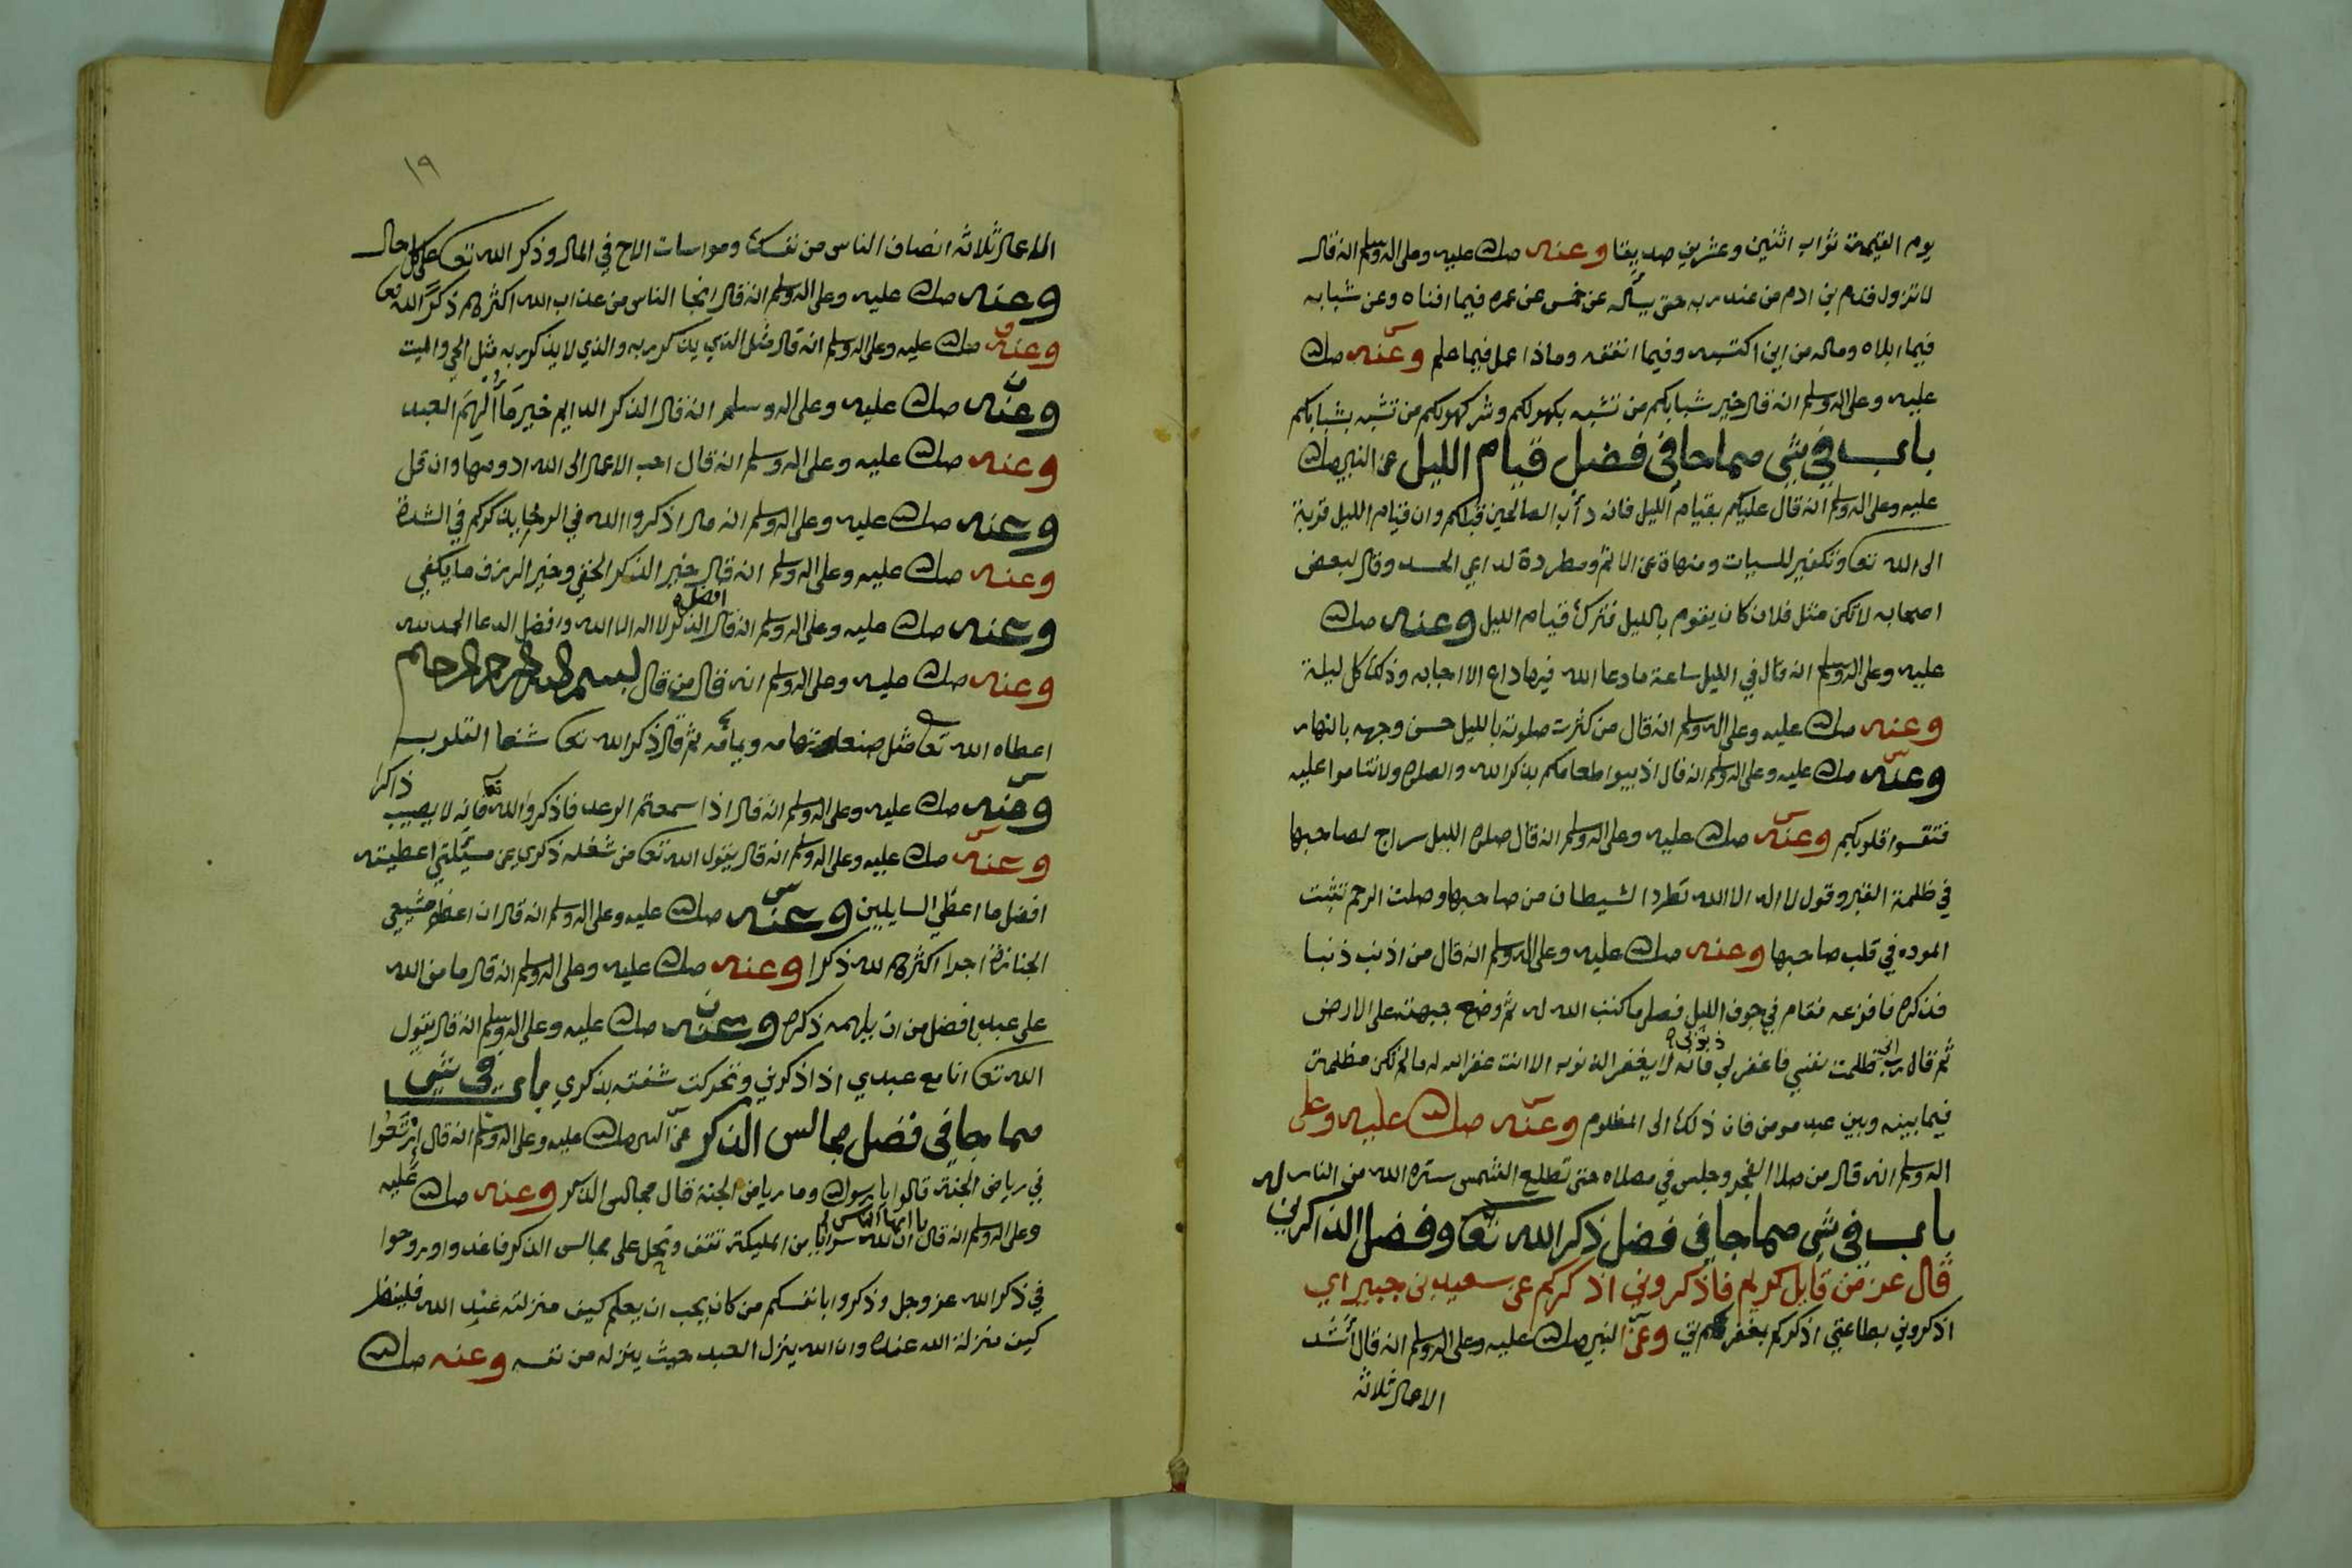 يوم القيمة ثواب اثنين وعشرين صديقا وعنه صلى الله عليه وعلى اله وسلم انه قال
لا تزول قدم بن ادم من عند ربه حتى يسأله عن خمس عن عمره فيما افناه وعن شبابه
فيما ابلاه وماله من اين اكتسبه وفيما انفقه وماذا عمل فيما علم وعنه صلى الله
عليه وعلى اله وسلم انه قال خير شبابكم من تشبه بكهولكم وشر كهولكم من تشبه بشبابكم
باب في شي مما جا في فضل قيام الليل عن النبي صلى الله
عليه وعلى اله وسلم انه قال عليكم بقيام الليل فانه دأب الصالحين قبلكم وان قيام الليل قربة
الى الله تعا وتكفير للسيات ومنهاة عن الاثم ومطردة لداي الجسد وقال لبعض
اصحابه لا تكن مثل فلان كان يقوم بالليل فترك قيام الليل وعنه صلى الله
عليه وعلى اله وسلم انه قال في الليل ساعة ما دعا الله فيها داع الا اجابه وذلك كل ليلة
وعنه صلى الله عليه وعلى اله وسلم انه قال من كثرت صلوته بالليل حسن وجهه بالنهار
وعنه صلى الله عليه وعلى اله وسلم انه قال اذيبوا طعامكم بذكر الله والصلوه ولا تناموا عليه
فتقسوا قلوبكم وعنه صلى الله عليه وعلى اله وسلم انه قال صلوه الليل سراج لصاحبها
في ظلمة القبر وقول لا اله الا الله تطرد الشيطان من صاحبها وصلت الرحم تثبت
الموده في قلب صاحبها وعنه صلى الله عليه وعلى اله وسلم انه قال من اذنب ذنبا
فذكره فافزعه فقام في جوف الليل فصلى ما كتب الله له ثم وضع جبهته على الارض
ثم قال رب اني ظلمت نفسي فاغفر لي ذنوبي فانه لا يغفر الذنوب الا انت غفر الله له ما لم تكن مظلمة
فيما بينه وبين عبد مومن فان ذلك الى المظلوم وعنه صلى الله عليه وعلى
اله وسلم انه قال من صلا الفجر وجلس في مصلاه حتى تطلع الشمس ستره الله من النار
باب في شي مما جا في فضل ذكر الله تعا وفضل الذاكرين
قال عز من قايل كريم فاذكروني اذكركم عن سعيد بن جبير اي
اذكروني بطاعتي اذكركم بمغفرتي وعن النبي صلى الله عليه وعلى اله وسلم انه قال أشد
الاعمال ثلاثة
١٩
الاعمال ثلاثة انصاف الناس من نفسك ومواسات الاخ في المال وذكر الله تعا على كل حال
وعنه صلى الله عليه وعلى اله وسلم انه قال انجا الناس من عذاب الله اكثرهم ذكرًا لله تعا
وعنه صلى الله عليه وعلى اله وسلم انه قال مثل الذي يذكر ربه والذي لا يذكر ربه مثل الحي والميت
وعنه صلى الله عليه وعلى اله وسلم انه قال الذكر الدايم خير ما أُلْهِمَ العبد
وعنه صلى الله عليه وعلى اله وسلم انه قال احب الاعمال الى الله ادومها وان قل
وعنه صلى الله عليه وعلى اله وسلم انه قال اذكروا الله في الرخا يذكركم في الشدة
وعنه صلى الله عليه وعلى اله وسلم انه قال خير الذكر الخفي وخير الرزق ما يكفي
وعنه صلى الله عليه وعلى اله وسلم انه قال افضل الذكر لا اله الا الله وافضل الدعا الحمد لله
وعنه صلى الله عليه وعلى اله وسلم انه قال من قال بسم الله الرحمن الرحيم
اعطاه الله تعا مثل صنعا وتهامه ثم قال ذكر الله تعا شفا القلوب
وعنه صلى الله عليه وعلى اله وسلم انه قال اذا سمعتم الرعد فاذكروا الله تعا فانه لا يصيب ذاكرا
وعنه صلى الله عليه وعلى اله وسلم انه قال يقول الله تعا من شغله ذكري عن مسئلتي اعطيته
افضل ما اعطي السايلين وعنه صلى الله عليه وعلى اله وسلم انه قال ان اعظم مشيعي
الجنازة اجرا اكثرهم لله ذكرا وعنه صلى الله عليه وعلى اله وسلم انه قال ما من الله
على عبد بافضل من ان يلهمه ذكره وعنه صلى الله عليه وعلى اله وسلم انه قال يقول
الله تعا انا مع عبدي اذا ذكرني وتحركت شفته بذكري باب في شي
مما جا في فضل مجالس الذكر عن النبي صلى الله عليه وعلى اله وسلم انه قال ارتعوا
في رياض الجنة قالوا يا رسول الله وما رياض الجنة قال مجالس الذكر وعنه صلى الله عليه
وعلى اله وسلم انه قال يا ايها الناس ان لله سرايا من المليكة تقف وتحل على مجالس الذكر فاغدوا وروحوا
في ذكر الله عز وجل وذكروا بانفسكم من كان يحب ان يعلم كيف منزلته عند الله فلينظر
كيف منزلة الله عنده وان الله ينزل العبد حيث ينزله من نفسه وعنه صلى الله